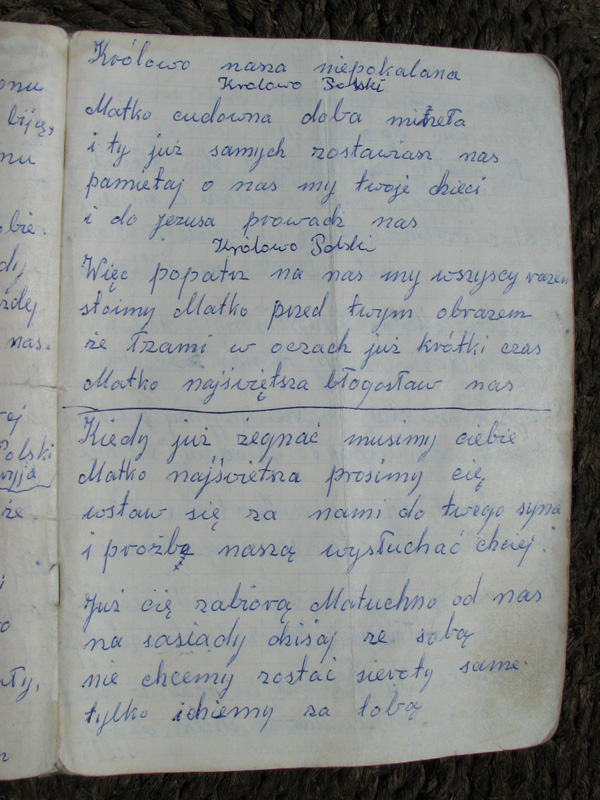 onu
bije,
nu
obie.
dy
rdej
nas.
ej
Polski
ryja
że
ały,
Królowo nasza niepokalana
Królowo Polski
Matko cudowna doba minęła
i ty już samych zostawiasz nas
pamiętaj o nas my twoje dzieci
i do jezusa prowadź nas
Królowo Polski
Więc popatrz na nas my wszyscy razem
stoimy Matko przed twym obrazem
ze łzami w oczach już krótki czas
Matko najświętsza błogosław nas
Kiedy już żegnać musimy ciebie
Matko najświetsza prosimy cię
wstaw się za nami do twego syna
i prożbę naszą wysłuchać chciej.
Już cię zabiorą Matuchno od nas
na sasiady dzisaj ze sobą
nie chcemy zostać sieroty same
tylko idziemy za tobą